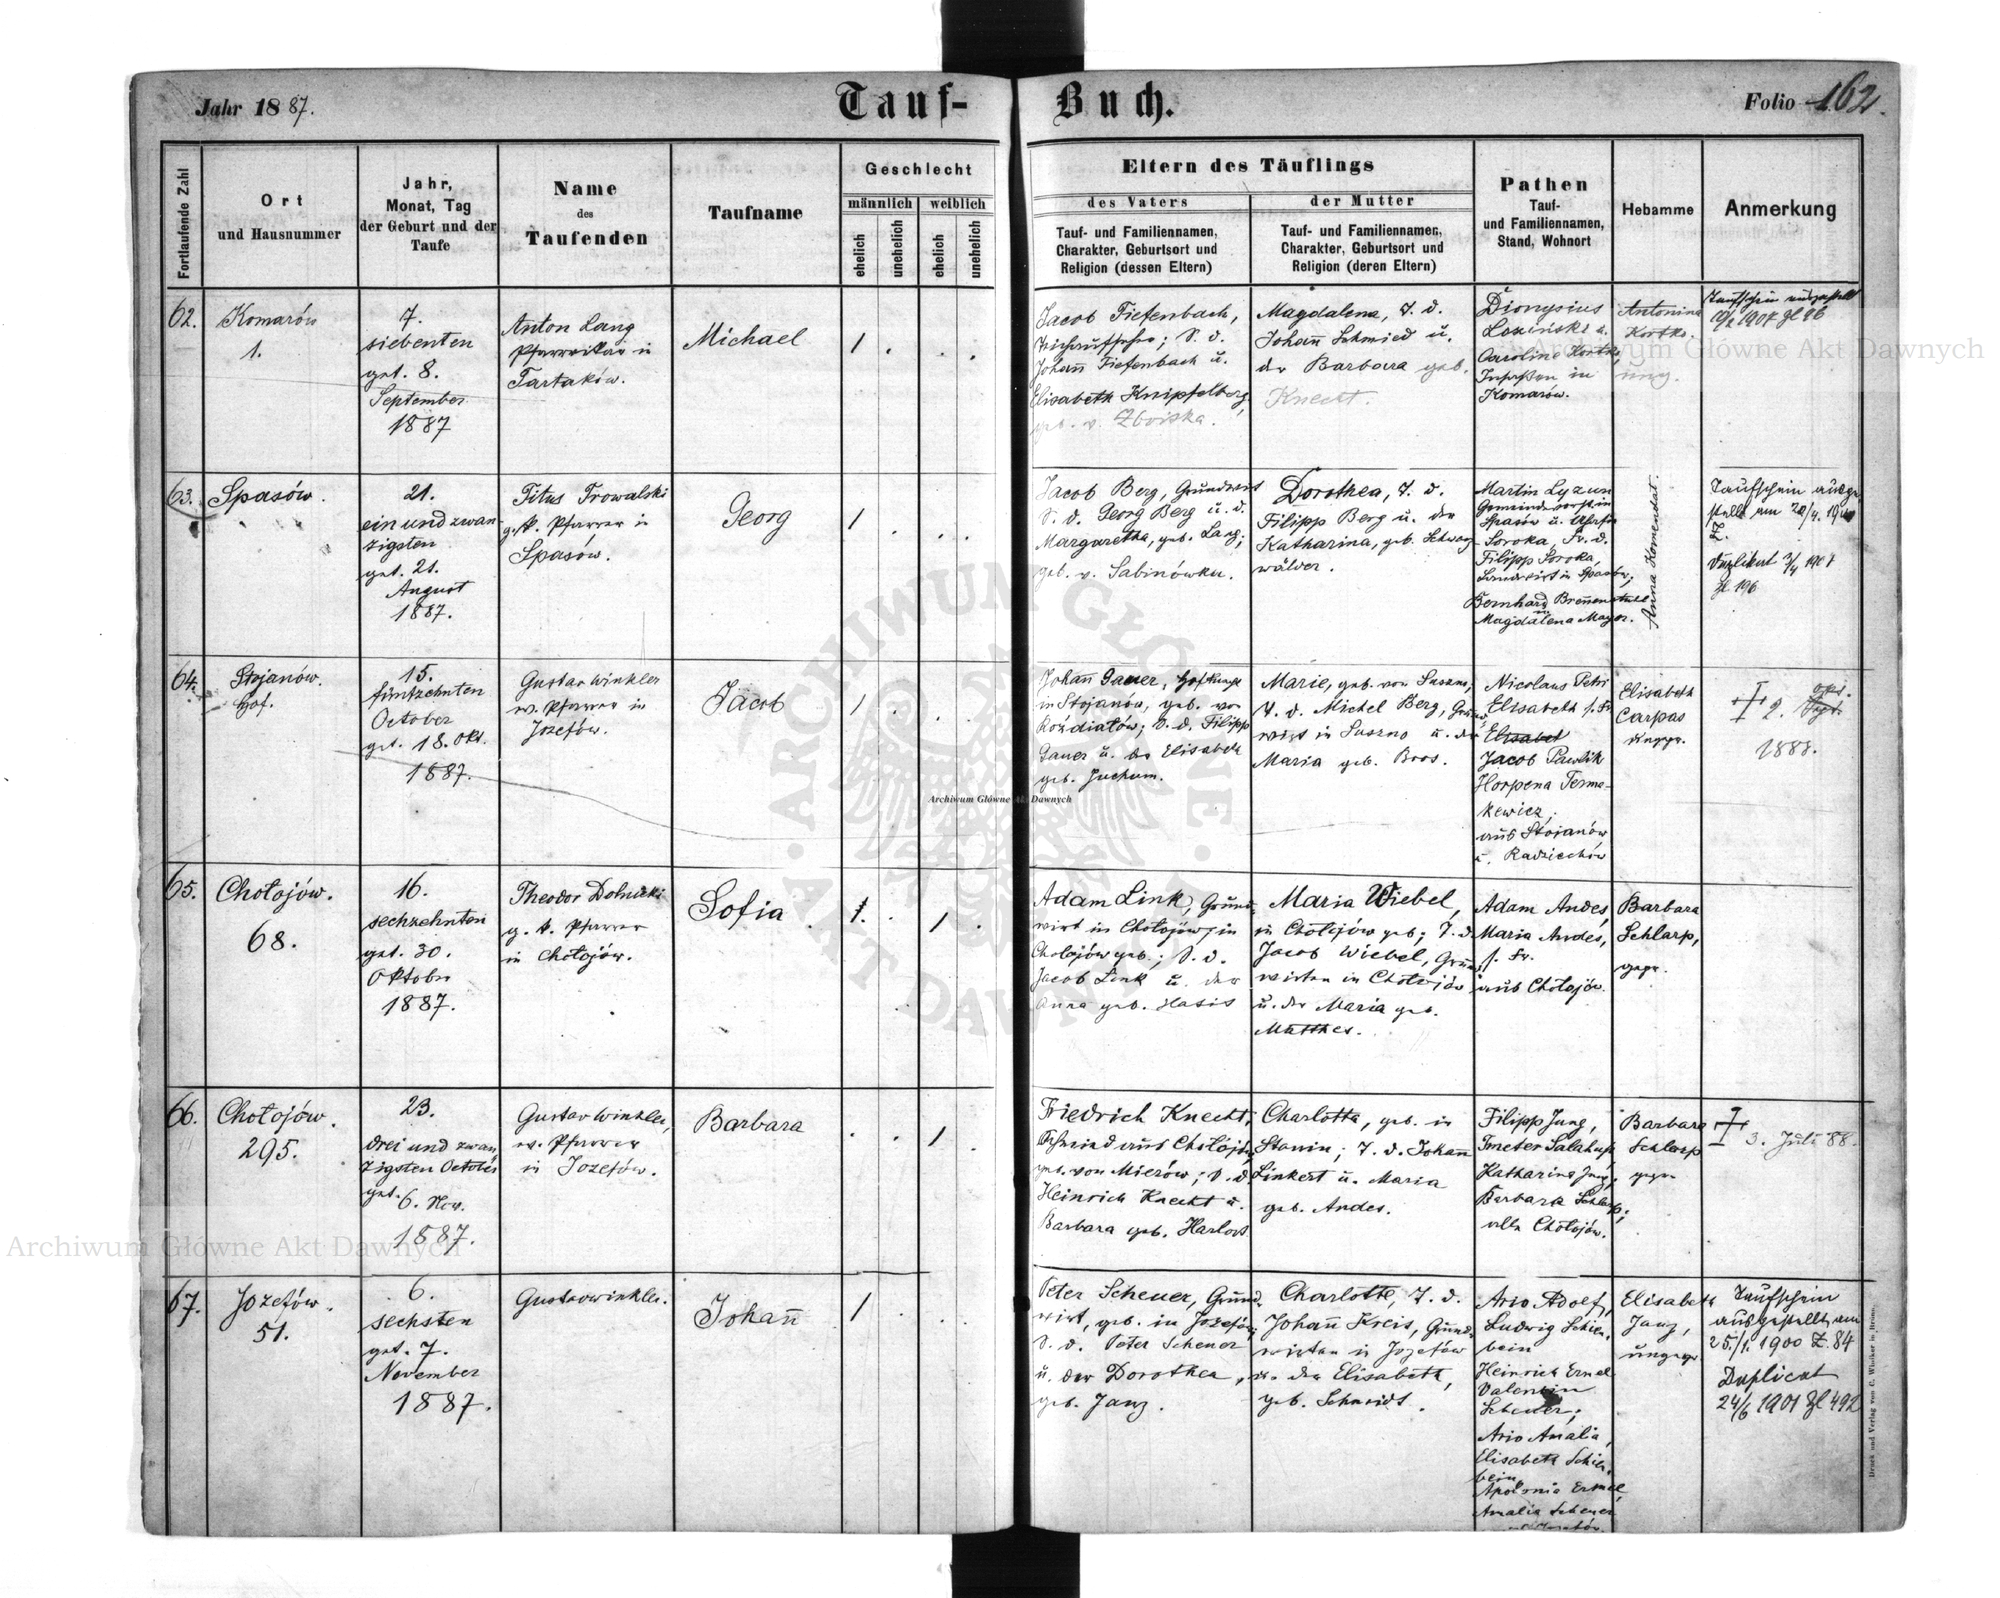 Jahr 1887.
Tauf-Buch.
Folio 162.
Fortlaufende Zahl
Ort
und Hausnummer
Jahr,
Monat, Tag
der Geburt und der
Taufe
Name
des
Taufenden
Taufname
Geschlecht
männlich
weiblich
ehelich
unehelich
ehelich
unehelich
Eltern des Täuflings
des Vaters
Tauf- und Familiennamen,
Charakter, Geburtsort und
Religion (dessen Eltern)
der Mutter
Tauf- und Familiennamen,
Charakter, Geburtsort und
Religion (deren Eltern)
Pathen
Tauf-
und Familiennamen,
Stand, Wohnort
Hebamme
Anmerkung
62.
Komarów
1.
7.
siebenten
get. 8.
September
1887
Anton Lang
Pfarrvikar in
Tartaków.
Michael
1
Jacob Tiefenbach,
S. d.
Johañ Tiefenbach u.
Elisabeth Knipfelberg,
geb. v. Zboiska.
Magdalena, T. d.
Johañ Schmied u.
der Barbara geb.
Knecht.
Dionysius
Loziński u.
Caroline Kortko,
Insaßen in
Komarów.
Antonina
Kortko.
ung.
Taufschein ausgestellt
1907 Zl 96
63.
Spasów.
21.
ein und zwan
zigsten
get. 21.
August
1887.
Titus Trowalski
g. k. Pfarrer in
Spasów.
Georg
1
Jacob Berg, Grundwirt
S. d. Georg Berg u. d.
Margaretha, geb. Lang;
geb. v. Sabinówku.
Dorothea, T. d.
Filipp Berg u. der
Katharina, geb. Schwarz
wälder.
Martin Lyzun
Gemeindevorst. in
Spasów u.
Soroka, Fr. d.
Filipp Soroka,
Landwirt in Spasów;
Bernhard Breñenstuhl
Magdalena Mayer.
Anna Komendat.
Taufschein ausge
stellt am
Z.
Duplikat 3/4 1907
Zl 196
64.
Stojanów.
Hof.
15.
fünfzehnten
October
get. 18. Okt.
1887.
Gustav Winkler
ev. Pfarrer in
Jozefów.
Jacob
1
Johañ Gauer, Hofknecht
in Stojanów, geb. von
Rozdiatów; S. d. Filipp
Gauer u. der Elisabeth
geb. Juchum.
Marie, geb. von Suszno,
T. d. Michel Berg, Grund
wirt in Suszno u. der
Maria geb. Bros.
Nicolaus Petri
Elisabeth s. Fr.
Elisabet
Jacob Pawlik
Horpena Terma-
kewicz,
aus Stojanów
u. Radziechów
Elisabeth
Carpas
2. Sept.
1888.
65.
Chołojów.
68.
16.
sechzehnten
get. 30.
Oktober
1887.
Theodor Dolnicki
g. k. Pfarrer
in Chołojów.
Sofia
1.
1
Adam Link, Grund-
wirt in Chołojów, in
Chołojów geb.; S. d.
Jacob Link u. der
Anna geb. Hasis
Maria Wiebel,
in Chołojów geb; T. d.
Jacob Wiebel, Grund-
wirten in Chołojów
u. der Maria geb.
Matthes.
Adam Andes,
Maria Andes,
s. Fr.
aus Chołojów.
Barbara
Schlarp,
gepr.
66.
Chołojów.
295.
23.
drei und zwan
zigsten October
get. 6. Nov.
1887.
Gustav Winkler,
ev. Pfarrer
in Jozefów.
Barbara
1
Friedrich Knecht,
Schmied aus Chołojów,
geb. von Mierów; S. d.
Heinrich Knecht u.
Barbara geb. Harlos
Charlotta, geb. in
Stanin; T. d. Johañ
Linkert u. Maria
geb. Andes.
Filipp Jung,
Dmeter Salahup
Katharina Jung,
Barbara Schlarp;
alle Chołojów.
Barbara
Schlarp
gepr.
3. Juli 88.
67.
Jozefów.
51.
6.
sechsten
get. 7.
November
1887.
Gustav Winkler.
Johañ
1
Peter Scheuer, Grund-
wirt, geb. in Jozefów;
S. d. Peter Scheuer
u. der Dorothea,
geb. Janz.
Charlotte, T. d.
Johañ Kreis, Grund-
wirten in Jozefów
u. der Elisabeth,
geb. Schmidt.
Ario Adolf,
Ludwig Schien-
bein
Heinrich Ermel
Valentin
Scheuer;
Ario Amalia,
Elisabeth Schien-
bein,
Apolonia Ermel,
Amalia Scheuer
Elisabeth
Janz,
ungepr.
Taufschein
ausgestellt am
25./1. 1900 Z. 84
Duplicat
24/6 1901 Zl 492
Druck und Verlag von C. Winiker in Brünn.
Archiwum Główne Akt Dawnych
Archiwum Główne Akt Dawnych
Archiwum Główne Akt Dawnych
ARCHIWUM GŁÓWNE AKT DAWNYCH